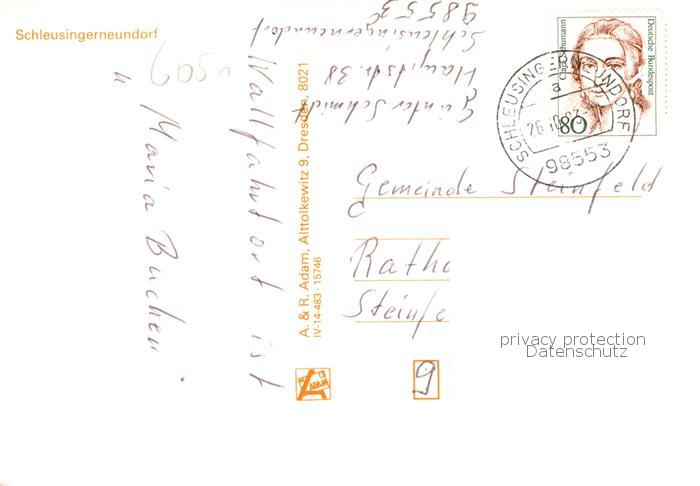 Schleusingerneundorf
Wallfahrtort ist
u Maria Buchen.
A. & R. Adam, Alttolkewitz 9, Dresden, 8021
IV-14-483 · 15746
Günter Schmidt
Hauptstr. 38
Schleusingerneundorf
98553
Clara Schumann
Deutsche Bundespost
80
SCHLEUSINGERNEUNDORF
a
98553
Gemeinde Steinfeld
Rathe
Steinfe
ADAM
9
privacy protection
Datenschutz